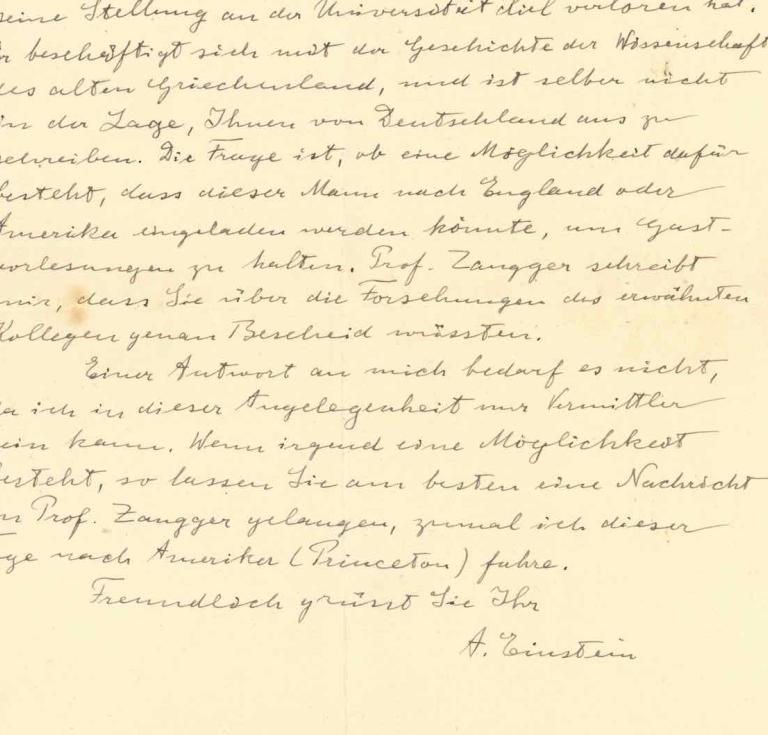 seine Stellung an der Universität Kiel verloren hat.
r beschäftigt sich mit der Geschichte der Wissenschaft
des alten Griechenland, und ist selber nicht
in der Lage, Ihnen von Deutschland aus zu
schreiben. Die Frage ist, ob eine Möglichkeit dafür
besteht, dass dieser Mann nach England oder
Amerika eingeladen werden könnte, um Gast-
vorlesungen zu halten. Prof. Zangger schreibt
mir, dass Sie über die Forschungen des erwähnten
Kollegen genau Bescheid wüssten.
Einer Antwort an mich bedarf es nicht,
da ich in dieser Angelegenheit nur Vermittler
sein kann. Wenn irgend eine Möglichkeit
besteht, so lassen Sie am besten eine Nachricht
an Prof. Zangger gelangen, zumal ich dieser
Tage nach Amerika (Princeton) fahre.
Freundlich grüsst Sie Ihr
A. Einstein